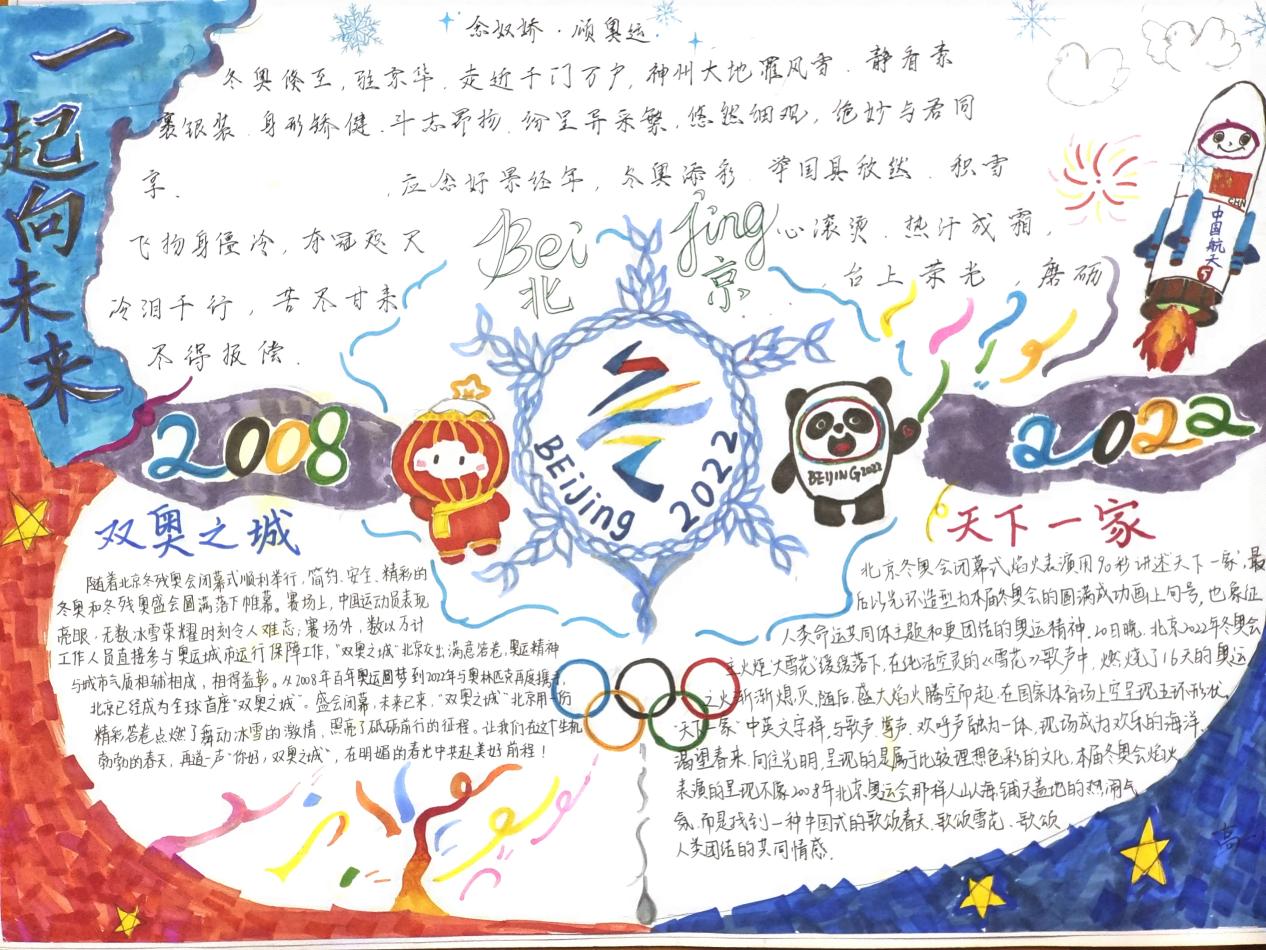 一起向未来
念奴娇·颂奥运
冬奥倏至，驻京华，走近千门万户，神州大地罹风雪，静看素
裹银装，身形矫健，斗志昂扬，纷呈异采繁，悠然细观，绝妙与君同
享。，应念好景经年，冬奥添彩，举国具欣然，积雪
飞扬身侵冷，夺冠 心滚烫，热汗成霜，
冷泪千行，苦尽甘来 台上荣光，磨砺
尽得报偿。
Bei jing
北京
中国航天
CHN
5
2008
BEijing 2022
BEIJING 2022
2022
双奥之城
随着北京冬残奥会闭幕式顺利举行，简约、安全、精彩的
冬奥和冬残奥盛会圆满落下帷幕。赛场上，中国运动员表现
亮眼，无数冰雪荣耀时刻令人难忘；赛场外，数以万计
工作人员直接参与奥运城市运行保障工作，“双奥之城”北京交出满意答卷，奥运精神
与城市气质相辅相成，相得益彰。从2008年百年奥运圆梦到2022年与奥林匹克再度携手，
北京已经成为全球首座“双奥之城”。盛会闭幕，未来已来，“双奥之城”北京用一份
精彩答卷点燃了舞动冰雪的激情，照亮了砥砺前行的征程。让我们在这个生机
勃勃的春天，再道一声“你好，双奥之城”，在明媚的春光中共赴美好前程！
天下一家
北京冬奥会闭幕式焰火表演用90秒讲述天下一家，最
后以光环造型为本届冬奥会的圆满成功画上句号，也象征
人类命运共同体主题和更团结的奥运精神。20日晚，北京2022年冬奥会
主火炬“大雪花”缓缓落下，在纯洁空灵的《雪花》歌声中，燃烧了16天的奥运
之火渐渐熄灭，随后，盛大焰火腾空而起，在国家体育场上空呈现五环形状，
“天下一家”中英文字样，与歌声、掌声、欢呼声融为一体，现场成为欢乐的海洋。
渴望春来，向往光明，呈现的是属于比较理想色彩的文化，本届冬奥会焰火
表演的呈现不像2008年北京奥运会那样人山人海、铺天盖地的热闹气
氛，而是找到一种中国式的歌颂春天、歌颂雪花、歌颂
人类团结的共同情感。